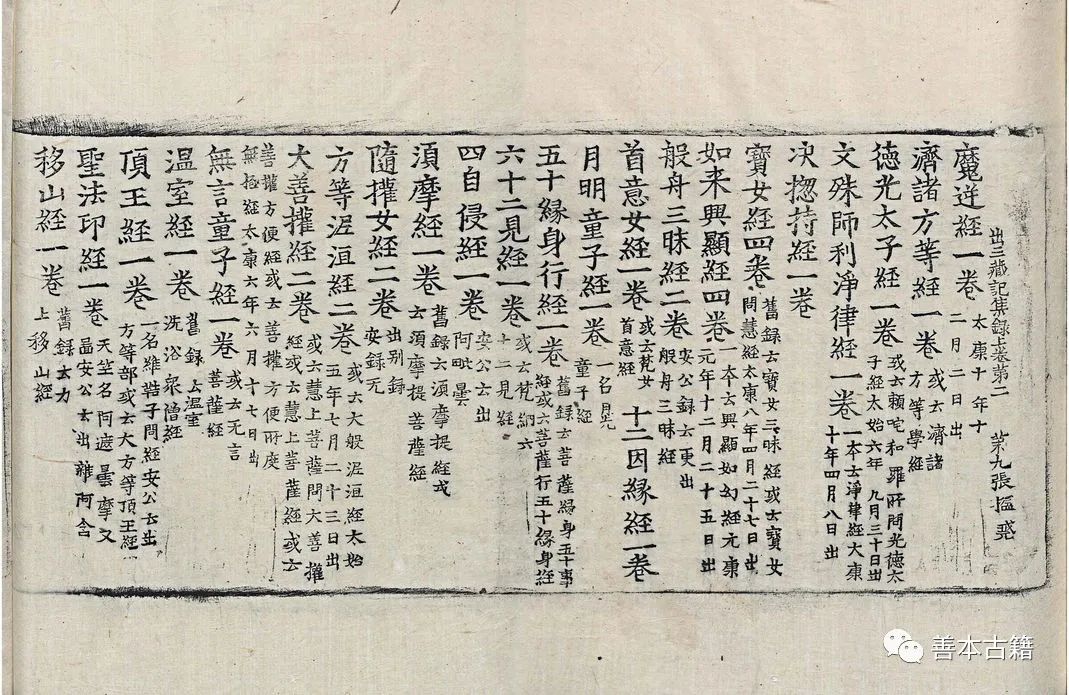 出三藏記集録上卷第二 苐九張
魔逆經一卷 太康十年十二月二日出
濟諸方等經一卷 或云濟諸方等學經
德光太子經一卷 或云賴吒和羅所問光德太子經太始六年九月三十日出
文殊師利淨律經一卷 一本云淨律經太康十年四月八日出
决揔持經一卷
寶女經四卷 舊録云寶女三昧經或云寶女問慧經太康八年四月二十七日出
如來興顯經四卷 一本云興顯如幻經元康元年十二月二十五日出
般舟三昧經二卷 安公録云更出般舟三昧經
首意女經一卷 或云梵女首意經 十二因緣經一卷
月明童子經一卷 一名月光童子經
五十緣身行經一卷 舊録云菩薩緣身五十事經或云菩薩行五十緣身經
六十二見經一卷 或云梵網六十二見經
四自侵經一卷 安公云出阿毗曇
須摩經一卷 舊録云須摩提經或云須摩提菩薩經
隨權女經二卷 出別録安録无
方等泥洹經二卷 或云大般泥洹經太始五年七月二十三日出
大善權經二卷 或云慧上菩薩問大善權經或云慧上菩薩經或云
善權方便經或云善權方便所度無極經太康六年六月十七日出
無言童子經一卷 或云无言菩薩經
温室經一卷 舊録云温室洗浴衆僧經
頂王經一卷 一名維鞊子問經安公云出方等部或云大方等頂王經
聖法印經一卷 天竺名阿遮曇摩文圖安公云出雜阿含
移山經一卷 舊録云力士移山經
善本古籍